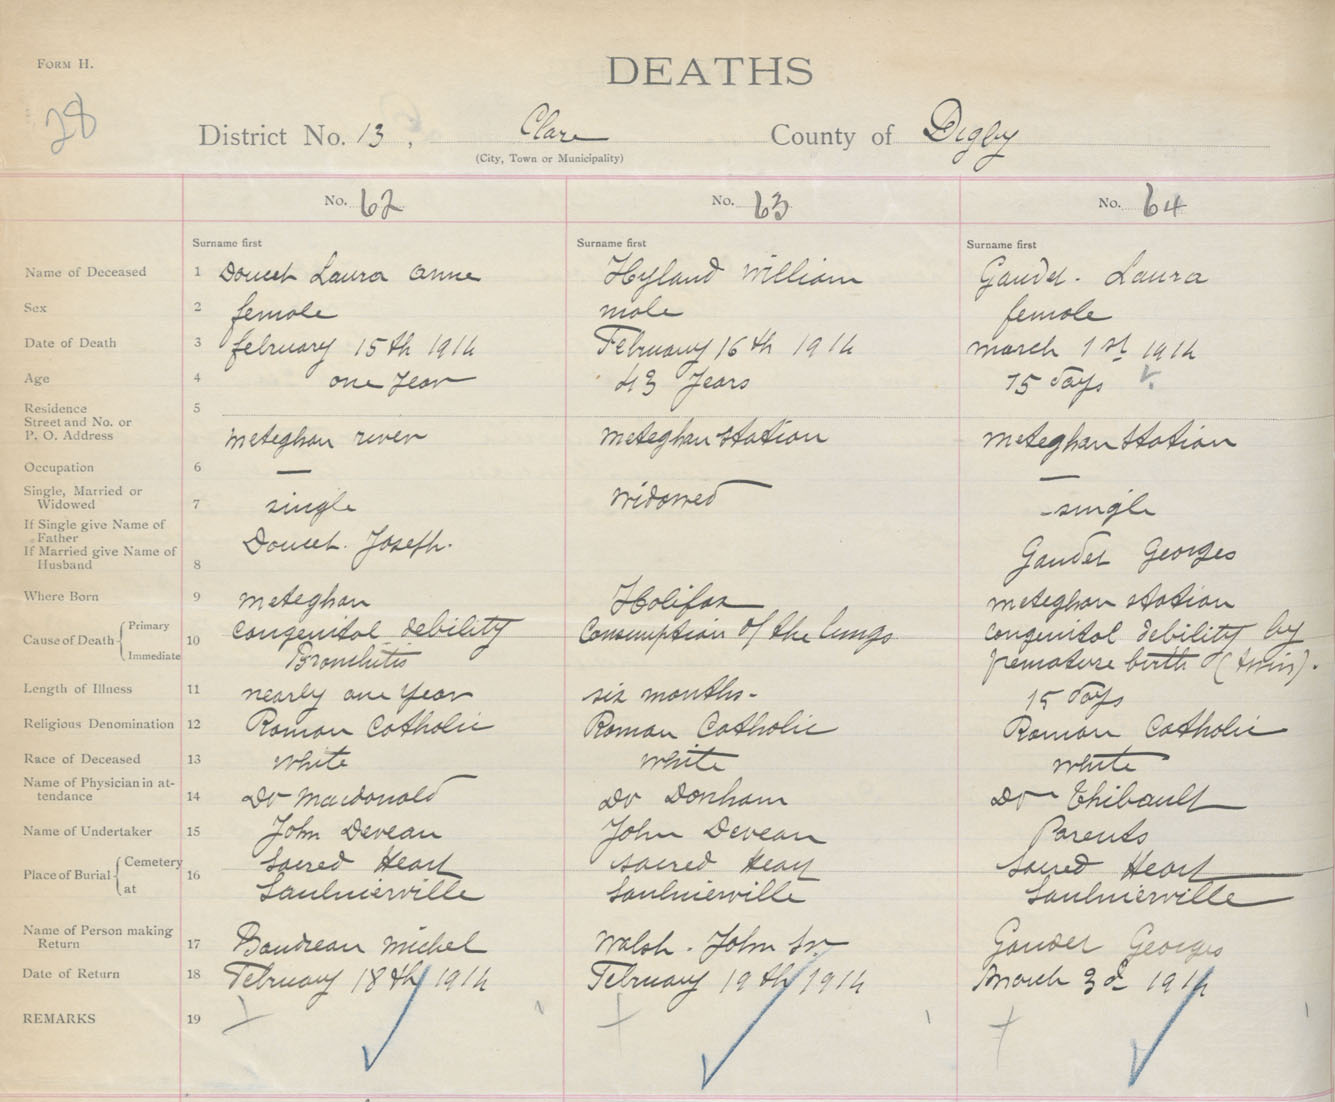 FORM H.
DEATHS
28
District No. 13, Clare County of Digby
(City, Town or Municipality)
No. 62 No. 63 No. 64
Surname first Surname first Surname first
Name of Deceased 1 Doucet Laura Anne Hyland William Gaudet. Laura
Sex 2 female male female
Date of Death 3 february 15th 1914 February 16th 1914 march 1st 1914
Age 4 one year 43 years 15 days
Residence 5
Street and No. or
P. O. Address meteghan river meteghan station meteghan station
Occupation 6 — —
Single, Married or
Widowed 7 single Widowed single
If Single give Name of
Father
Doucet. Joseph. Gaudet Georges
If Married give Name of
Husband 8
Where Born 9 meteghan Halifax meteghan station
Cause of Death Primary 10 congenital debility Consumption of the lungs congenital debility by
Immediate Bronchitis premature birth (twin).
Length of Illness 11 nearly one year six months- 15 days
Religious Denomination 12 Roman Catholic Roman Catholic Roman Catholic
Race of Deceased 13 white white white
Name of Physician in at-
tendance 14 Dr Macdonald Dr Donham Dr Thibault
Name of Undertaker 15 John Deveau John Deveau Parents
Place of Burial Cemetery 16 Sacred Heart Sacred Heart Sacred Heart
at Saulnierville Saulnierville Saulnierville
Name of Person making
Return 17 Boudreau michel Walsh. John Sr. Gaudet Georges
Date of Return 18 February 18th 1914 February 19th 1914 March 3d 1914
REMARKS 19